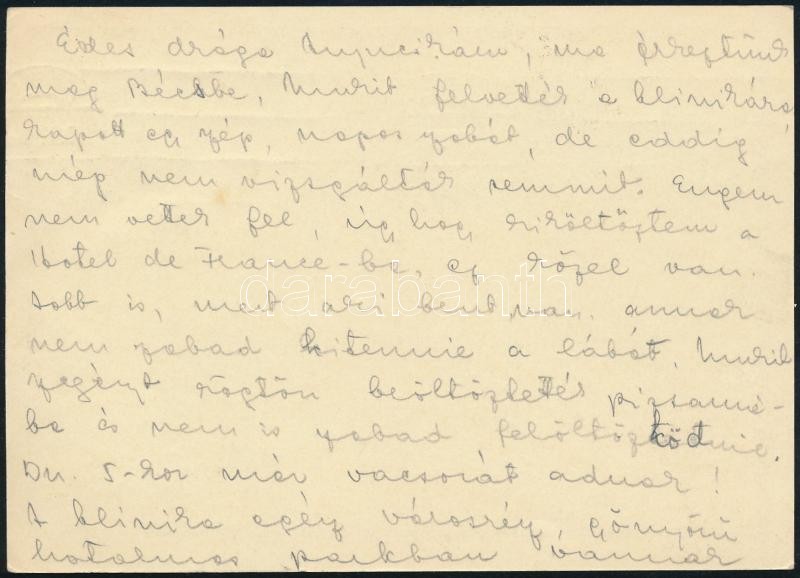 Édes drága Nyuszikám, ma érkeztünk
meg Bécsbe, Murit felvették a klinikára,
kapott egy szép, napos szobát, de eddig
még nem vizsgálták semmit. Engem
nem vettek fel, úgy hogy kiköltöztem a
Hotel de France-ba, ez közel van.
Jobb is, mert aki bent van, annak
nem szabad kitennie a lábát. Murit
szegényt rögtön beöltöztették pizsamá-
ba és nem is szabad felöltözködnie.
Du. 5-kor már vacsorát adnak!
A klinika egész városrész, gönyörű
hatalmas parkban vannak
darabanth